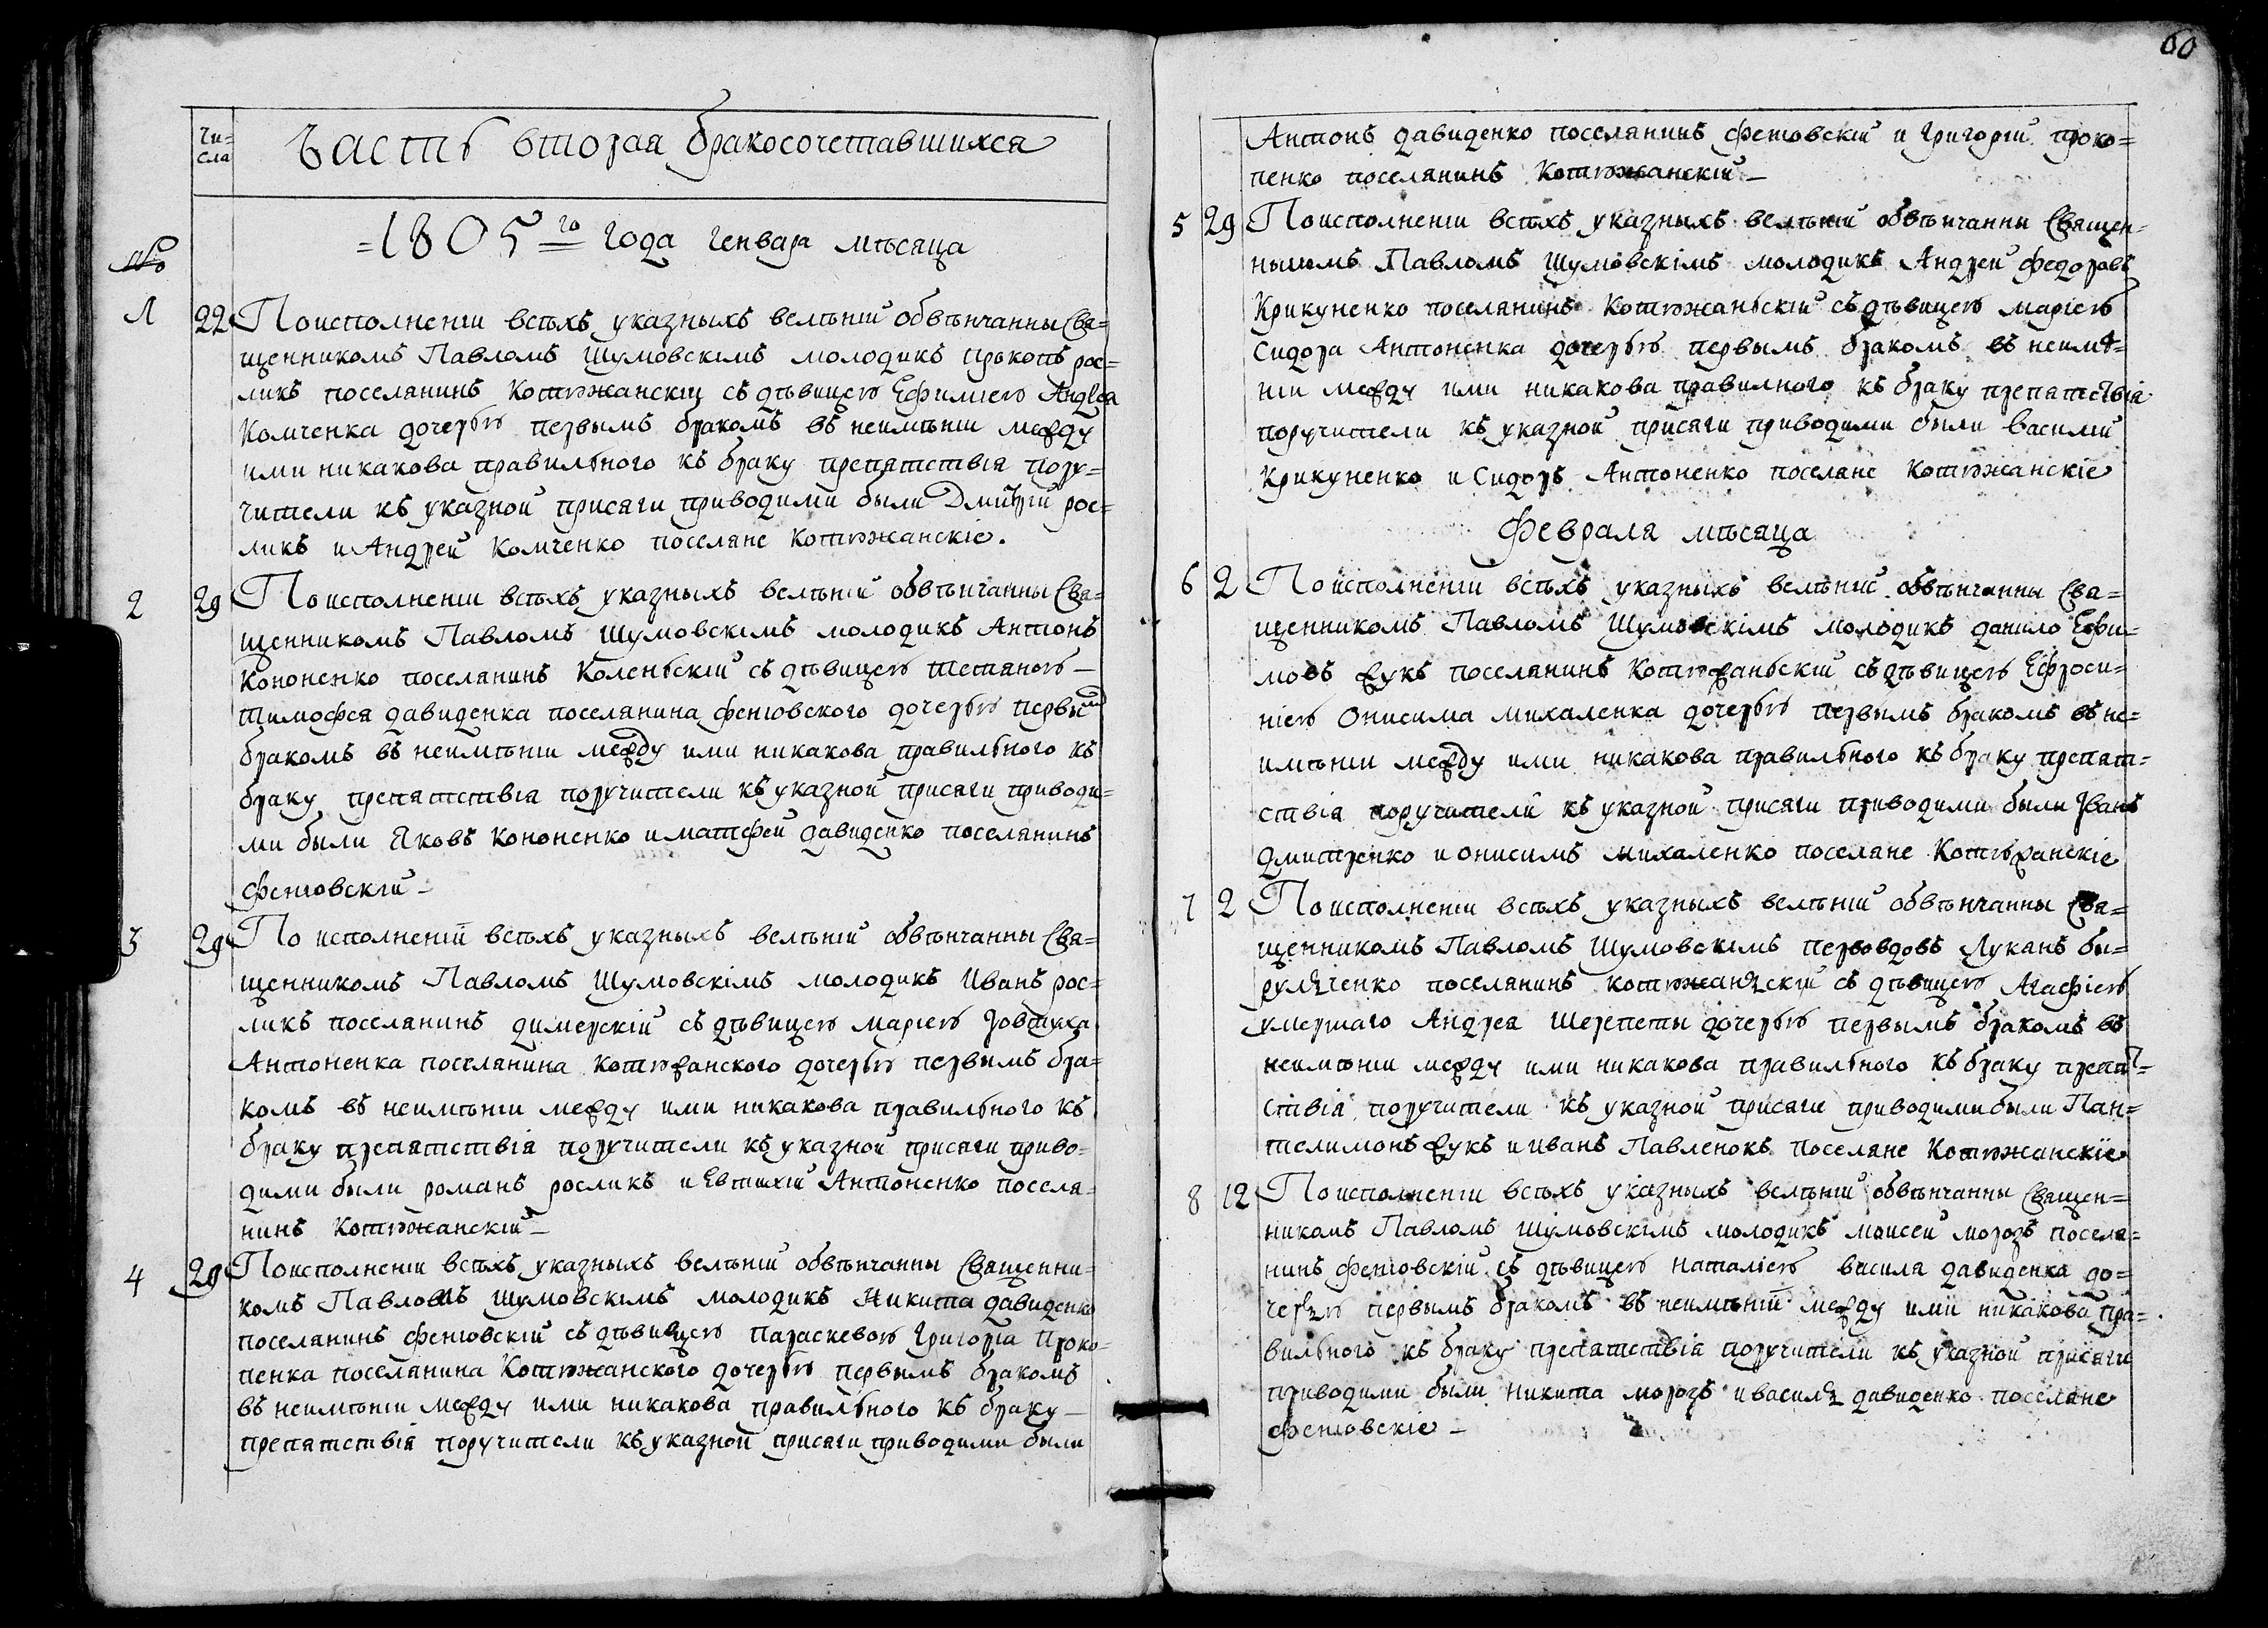 60
Чи=
сла
Часть вторая бракосочетавшихся
=1805го года генваря мѣсяца
№
1 22 По исполненіи всѣхъ указныхъ велѣній обвѣнчанны Свя=
щенникомъ Павломъ Шумовскимъ молодикъ прокопъ рос=
ликъ поселянинъ Котюжанскій съ дѣвицею Ефиміею Андрея
Комченка дочерью первымъ бракомъ въ неимѣніи между
ими никакова правильного къ браку препятствія пору=
чители къ указной присяги приводими были Дмитрій рос=
ликъ и Андрей Комченко поселяне котюжанскіе.
2 29 По исполненіи всѣхъ указныхъ велѣній обвѣнчанны Свя=
щенникомъ Павломъ Шумовскимъ молодикъ Антонъ
Кононенко поселянинъ Коленьскій съ дѣвицею тетяною
Тимофея давиденка поселянина феневского дочерью первым
бракомъ въ неимѣніи между ими никакова правильного къ
браку препятствія поручители къ указной присяги приводи=
ми были Яковъ Кононенко и матфей давиденко поселянинъ
феневскій
3 29 По исполненій всѣхъ указныхъ велѣній обвѣнчанны Свя=
щенникомъ Павломъ Шумовскімъ молодикъ Иванъ рос=
ликъ поселянинъ димерскій съ дѣвицею маріею Јовтуха
Антоненка поселянина котюжанского дочерью первымъ бра=
комъ въ неимѣніи между ими никакова правильного къ
браку препятствія поручители къ указной присяги приво=
дими были романъ росликъ и Евтихій Антоненко поселя=
нинъ котюжанскій
4 29 По исполненіи всѣхъ указныхъ велѣній обвѣнчанны Священни=
комъ Павломъ Шумовскимъ молодикъ Никита давиденко
поселянинъ феневскій съ дѣвицею Параскевою Григорія Проко=
пенка поселянина Котюжанского дочерью первымъ бракомъ
въ неимѣніи между ими никакова правильного къ браку
препятствія поручители къ указной присяги приводими были
Антонъ давиденко поселянинъ феневскій и Григорій проко=
пенко поселянинъ Котюжанскій
5 29 По исполненіи всѣхъ указныхъ велѣній обвѣнчанны Священ=
ныкомъ Павломъ Шумовскімъ молодикъ Андрей федоровъ
Крикуненко поселянинъ Котюжаньскій съ дѣвицею маріею
Сидора Антоненка дочерью первымъ бракомъ въ неимѣ=
ніи между ими никакова правилного къ браку препятствія
поручители къ указной присяги приводими были василий
Крикуненко и Сидоръ Антоненко поселяне котюжанскіе
Февраля мѣсяца
6 2 По исполненіи всѣхъ указныхъ велѣній обвѣнчанны Свя=
щенникомъ Павломъ Шумовскімъ молодикъ данило Ефи=
мовъ жукъ поселянинъ Котюжаньскій съ дѣвицею Ефроси=
ніею Онисима михаленка дочерью первымъ бракомъ въ не=
имѣніи между ими никакова правильного къ браку препят=
ствія поручители къ указной присяги приводими были Јванъ
Дмитренко и онисимъ михаленко поселяне Котюжанскіе
7 2 По исполненіи всѣхъ указныхъ велѣній обвѣнчанны Свя=
щенникомъ Павломъ Шумовскимъ первовдовъ Луканъ би=
рулченко поселянинъ котюжаньскій съ дѣвицею Агафіею
умершаго Андрея Шерепеты дочерью первымъ бракомъ въ
неимѣніи между ими никакова правильного къ браку препят=
ствія поручители къ указной присяги приводими были Пан=
телимонъ жукъ и иванъ Павленокъ поселяне Котюжанскіе
8 12 По исполненіи всѣхъ указныхъ велѣній обвѣнчанны Священ=
никомъ Павломъ Шумовскимъ молодикъ моисей морозъ поселя=
нинъ феневскій съ дѣвицею наталіею василя давиденка до=
черью первымъ бракомъ въ неимѣній между ими никакова пра=
вильного къ браку препятствія поручители къ указной присяги
приводими были никита морозъ и василь давиденко поселяне
феневскіе